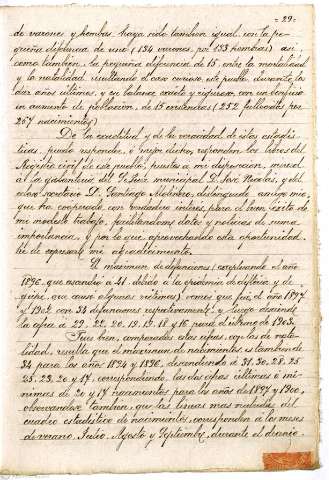 - 29 -
de varones y hembras haya sido tambien igual, con la pe-
queña diferencia de uno (134 varones, por 133 hembras) así
como tambien, la pequeña diferencia de 15 entre la mortalidad
y la natalidad, resultando el caso curioso, este pueblo durante los
diez años últimos, y en balance exacto y riguroso, con un beneficio
ó aumento de poblacion, de 15 existencias (252 fallecidos por
267 nacimientos)
De la exactitud y de la veracidad de estas estadís-
ticas, puedo responder, ó mejor dicho, responden los libros del
Registro civil de este pueblo, puestos á mi disposicion, merced
á la galantería del Juez municipal D. José y del
celoso secretario D. Santiago distinguido amigo mio,
que ha cooperado con verdadero interés, para el buen éxito de
mi modesto trabajo, facilitandome datos y noticias de suma
importancia, y por lo que, aprovechando esta oportunidad,
he de expresarle mi agradecimiento.
El maximun de defunciones (exceptuando el año
1896, que ascendió a 41 debido á la epidemia de y de
gripe, que causó algunas víctimas) vemos que fué, el año 1897
y 1902 con 34 defunciones respectivamente, y luego desciende
la cifra á 29, 22, 20, 19, 18 y 16 para el último de 1903.
Pues bien, comparadas estas cifras, con las de nata-
lidad, resulta que el maximun de nacimientos es tambien de
34 para los años 1894 y 1896, descendiendo á 31, 30, 28, 25
25, 23, 20 y 17, correspondiendo, las dos cifras últimas ó mí-
nimas de 20 y 17 nacimientos para los años de 1897 y 1900,
observandose tambien, que las líneas mas reducidas del
cuadro estadístico de nacimientos, corresponden á los meses
de verano, Julio, Agosto y Septiembre, durante el decenio.